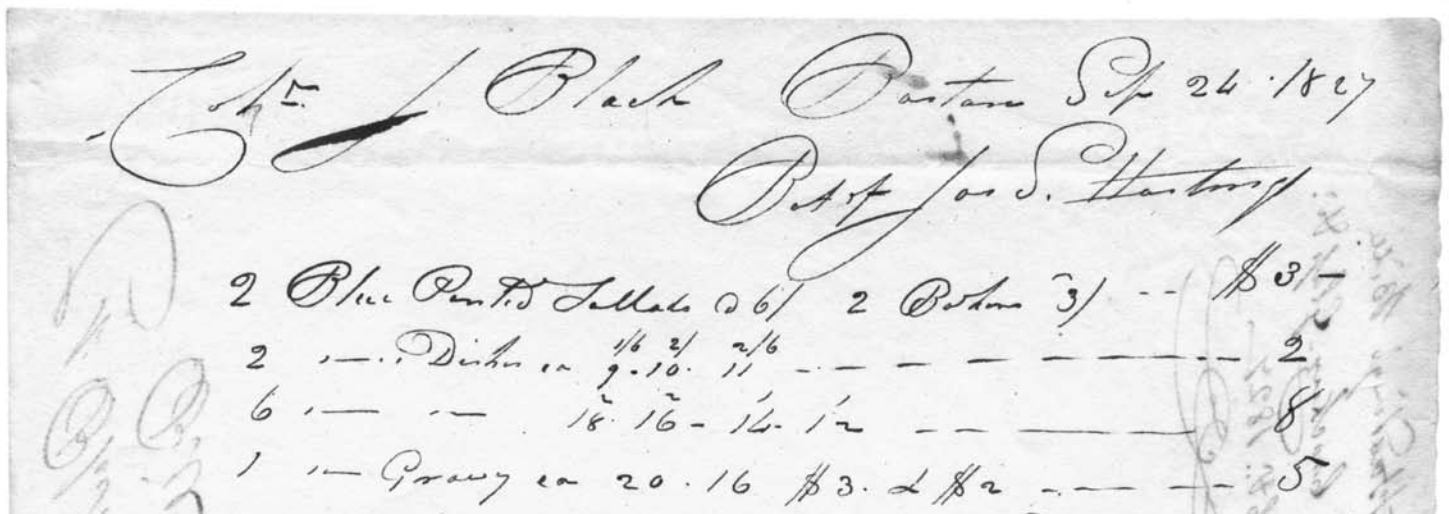 Colⁿ J. Black Boston Sep 24. 1827
Bot of Jos S. Hastings
2 Blue Printed Sallads @ 6/ 2 Bakers 3/ -- $3 —
2 " — " Dishes ea 1/6 2/ 2/6 9. 10. 11 — 2
6 " — " — 2 2 1 1 18. 16 - 14. 12 — 8
1 " — Gravy ea 20. 16 $3. & $2 — 5